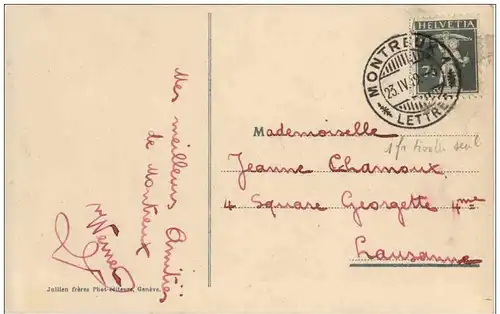 Mes meilleurs Amitiés
de Montreux
Werner
Jullien frères Phot-éditeurs, Genève.
HELVETIA
MONTREUX 1
23.IV
LETTRES
Mademoiselle
Jeanne Chamoux
4 Square Georgette 4me
Lausanne
seul